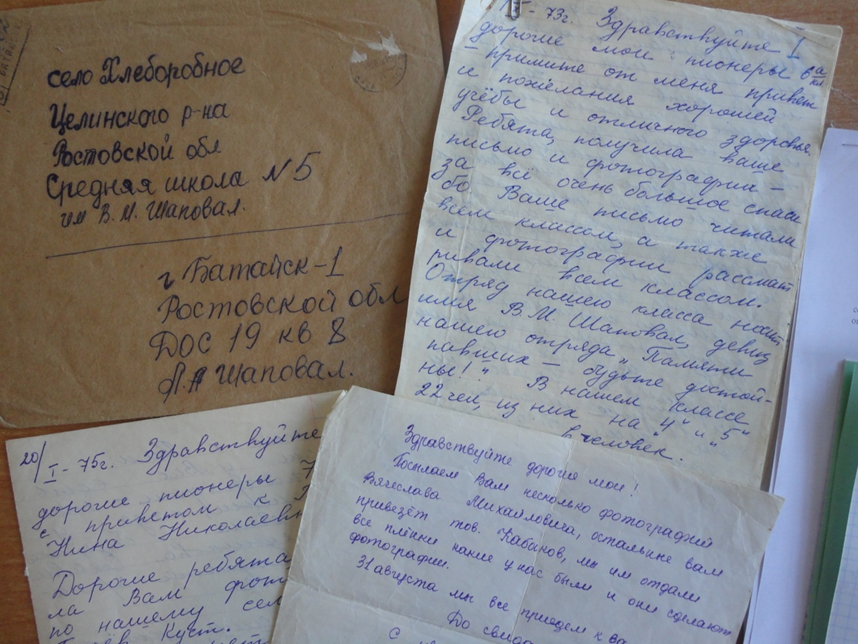 село Хлеборобное
Целинского р-на
Ростовской обл
Средняя школа N 5
им В. М. Шаповал.
г Батайск-1
Ростовской обл
ДОС 19 кв 8
Шаповал.
I - 73г. Здравствуйте
дорогие мои пионеры 6 а кл
примите от меня привет
и пожелания хорошей
учёбы и отличного здоровья.
Ребята, получила ваше
письмо и фотографии -
за всё очень большое спаси
бо Ваше письмо читали
всем классом, а также
и фотографии рассмат
ривали всем классом.
Отряд нашего класса носит
имя В М. Шаповал, девиз
нашего отряда „Памяти
павших - будьте достой-
ны!" В нашем классе
22 чел, из них на „4" и „5"
человек.
20/I - 75г. Здравствуйте
дорогие пионеры 7
с приветом к
Нина Николаевн
Дорогие ребята
ла Вам фот
по нашему сел
Куст.
Здравствуйте дорогие мои!
Посылаем Вам несколько фотографий
Вячеслава Михайловича, остальные вам
привезёт тов. Кабанов, мы им отдали
все плёнки какие у нас были и они сделают
фотографии.
31 августа мы все приедем к ва
До свида